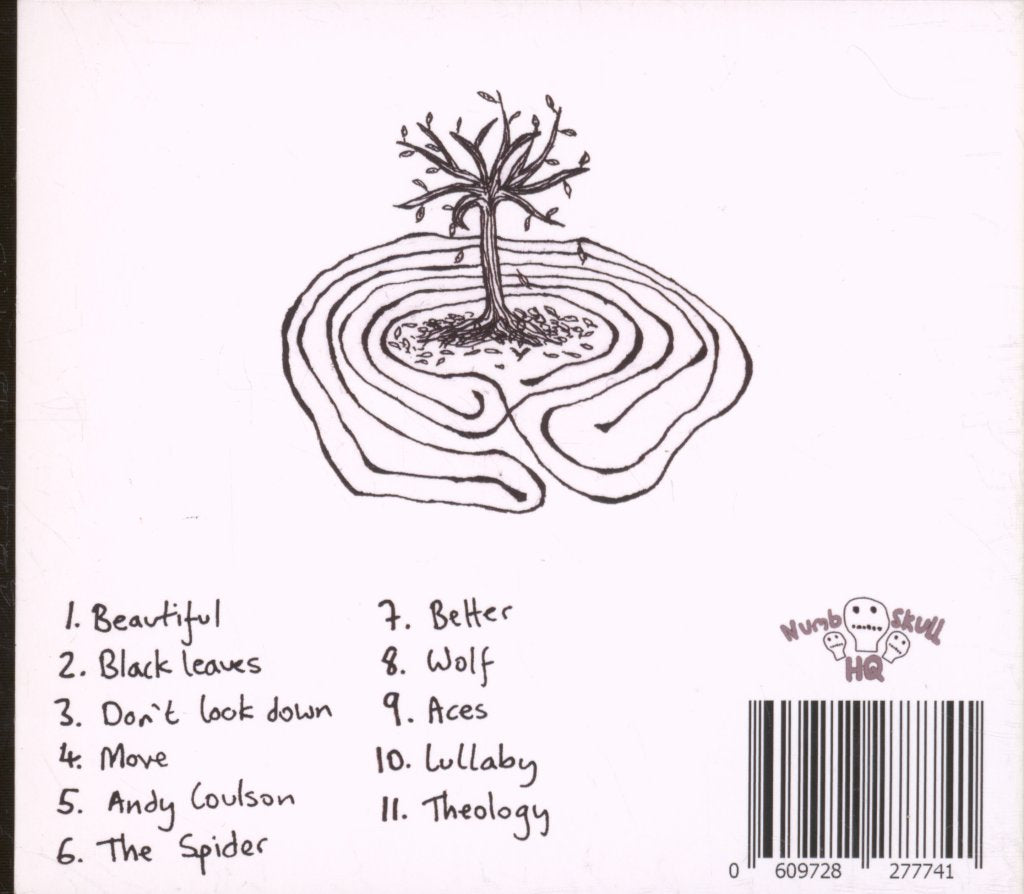 1. Beautiful
2. Black leaves
3. Don't look down
4. Move
5. Andy Coulson
6. The Spider
7. Better
8. Wolf
9. Aces
10. Lullaby
11. Theology
Numb Skull
HQ
0 609728 277741